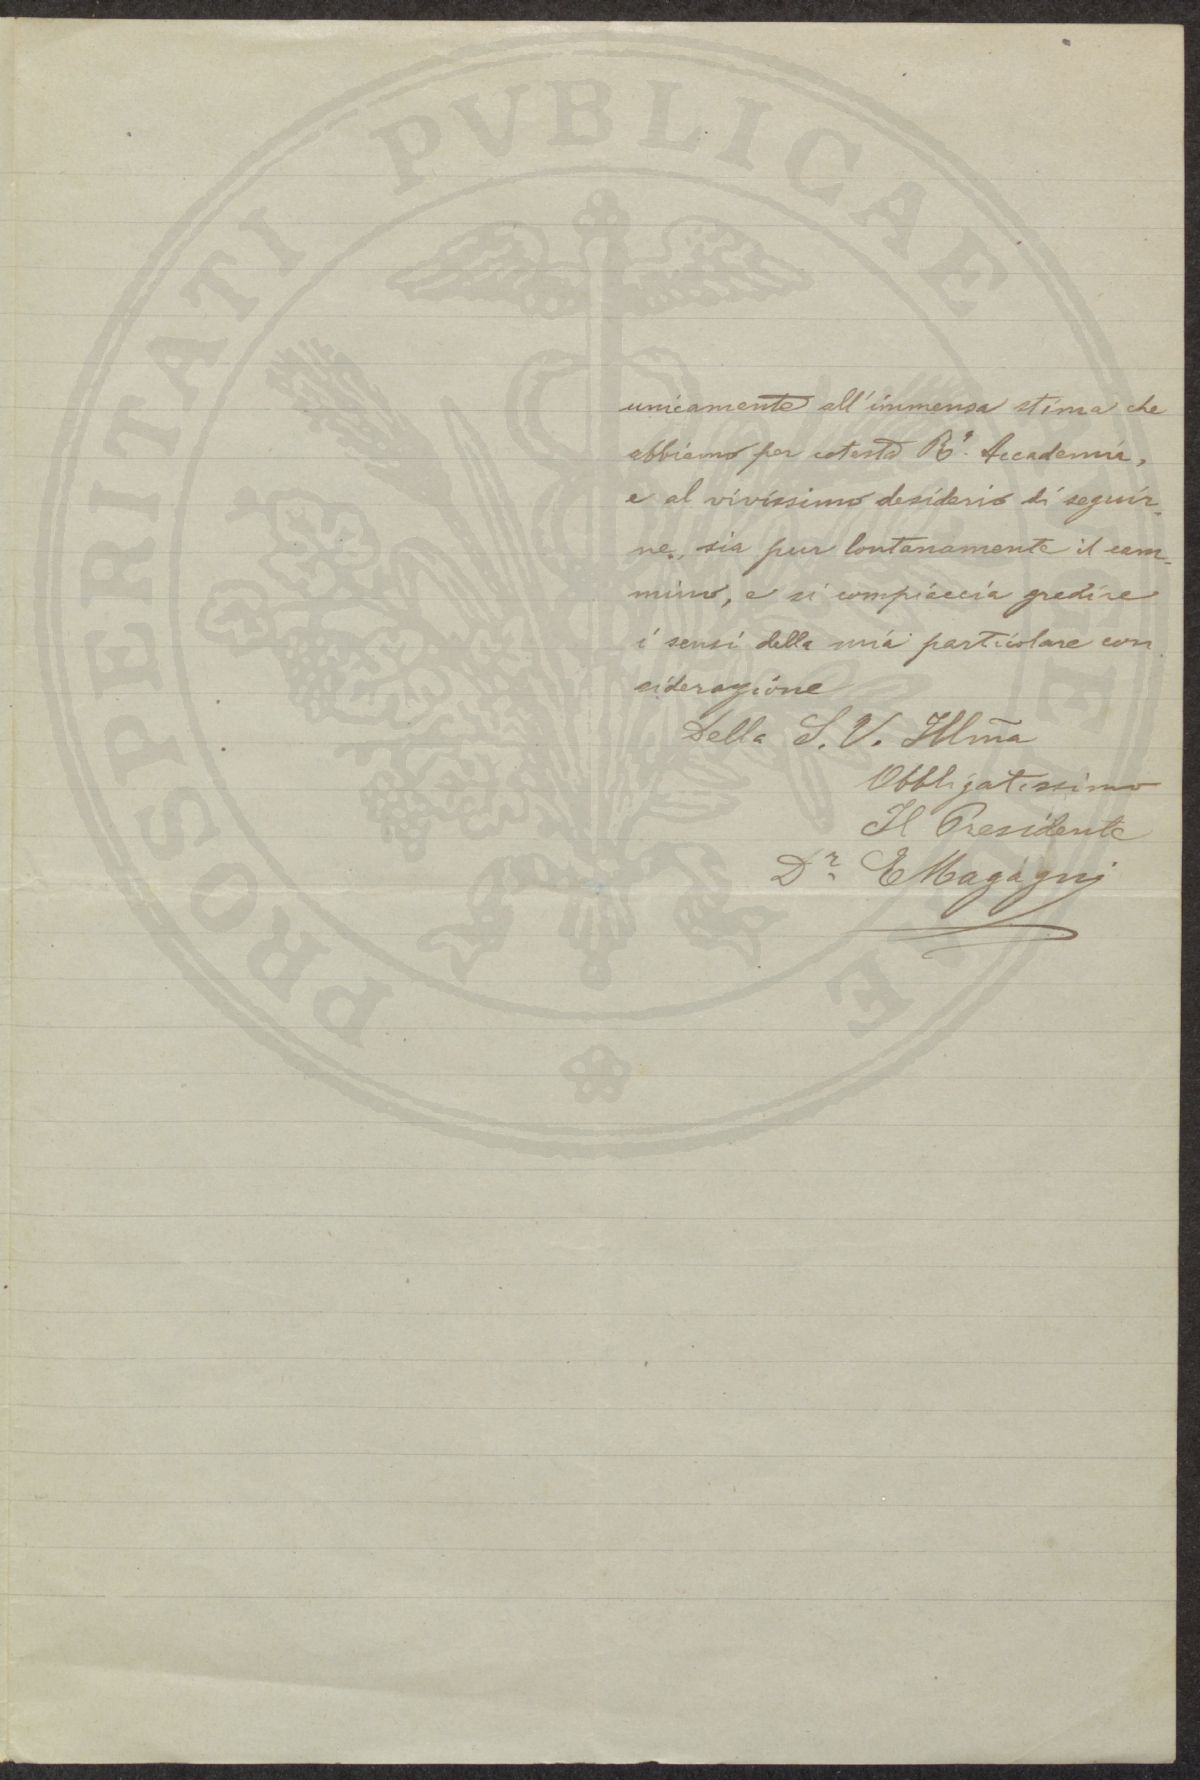 PROSPERITATI PVBLICAE
unicamente all'immensa stima che
abbiamo per cotesta R.ª Accademia,
e al vivissimo desiderio di seguir-
ne, sia pur lontanamente il cam-
mino, e si compiaccia gradire
i sensi della mia particolare con
siderazione
Della S. V. Illm̃a
Obbligatissimo
Il Presidente
D.r EMagagni